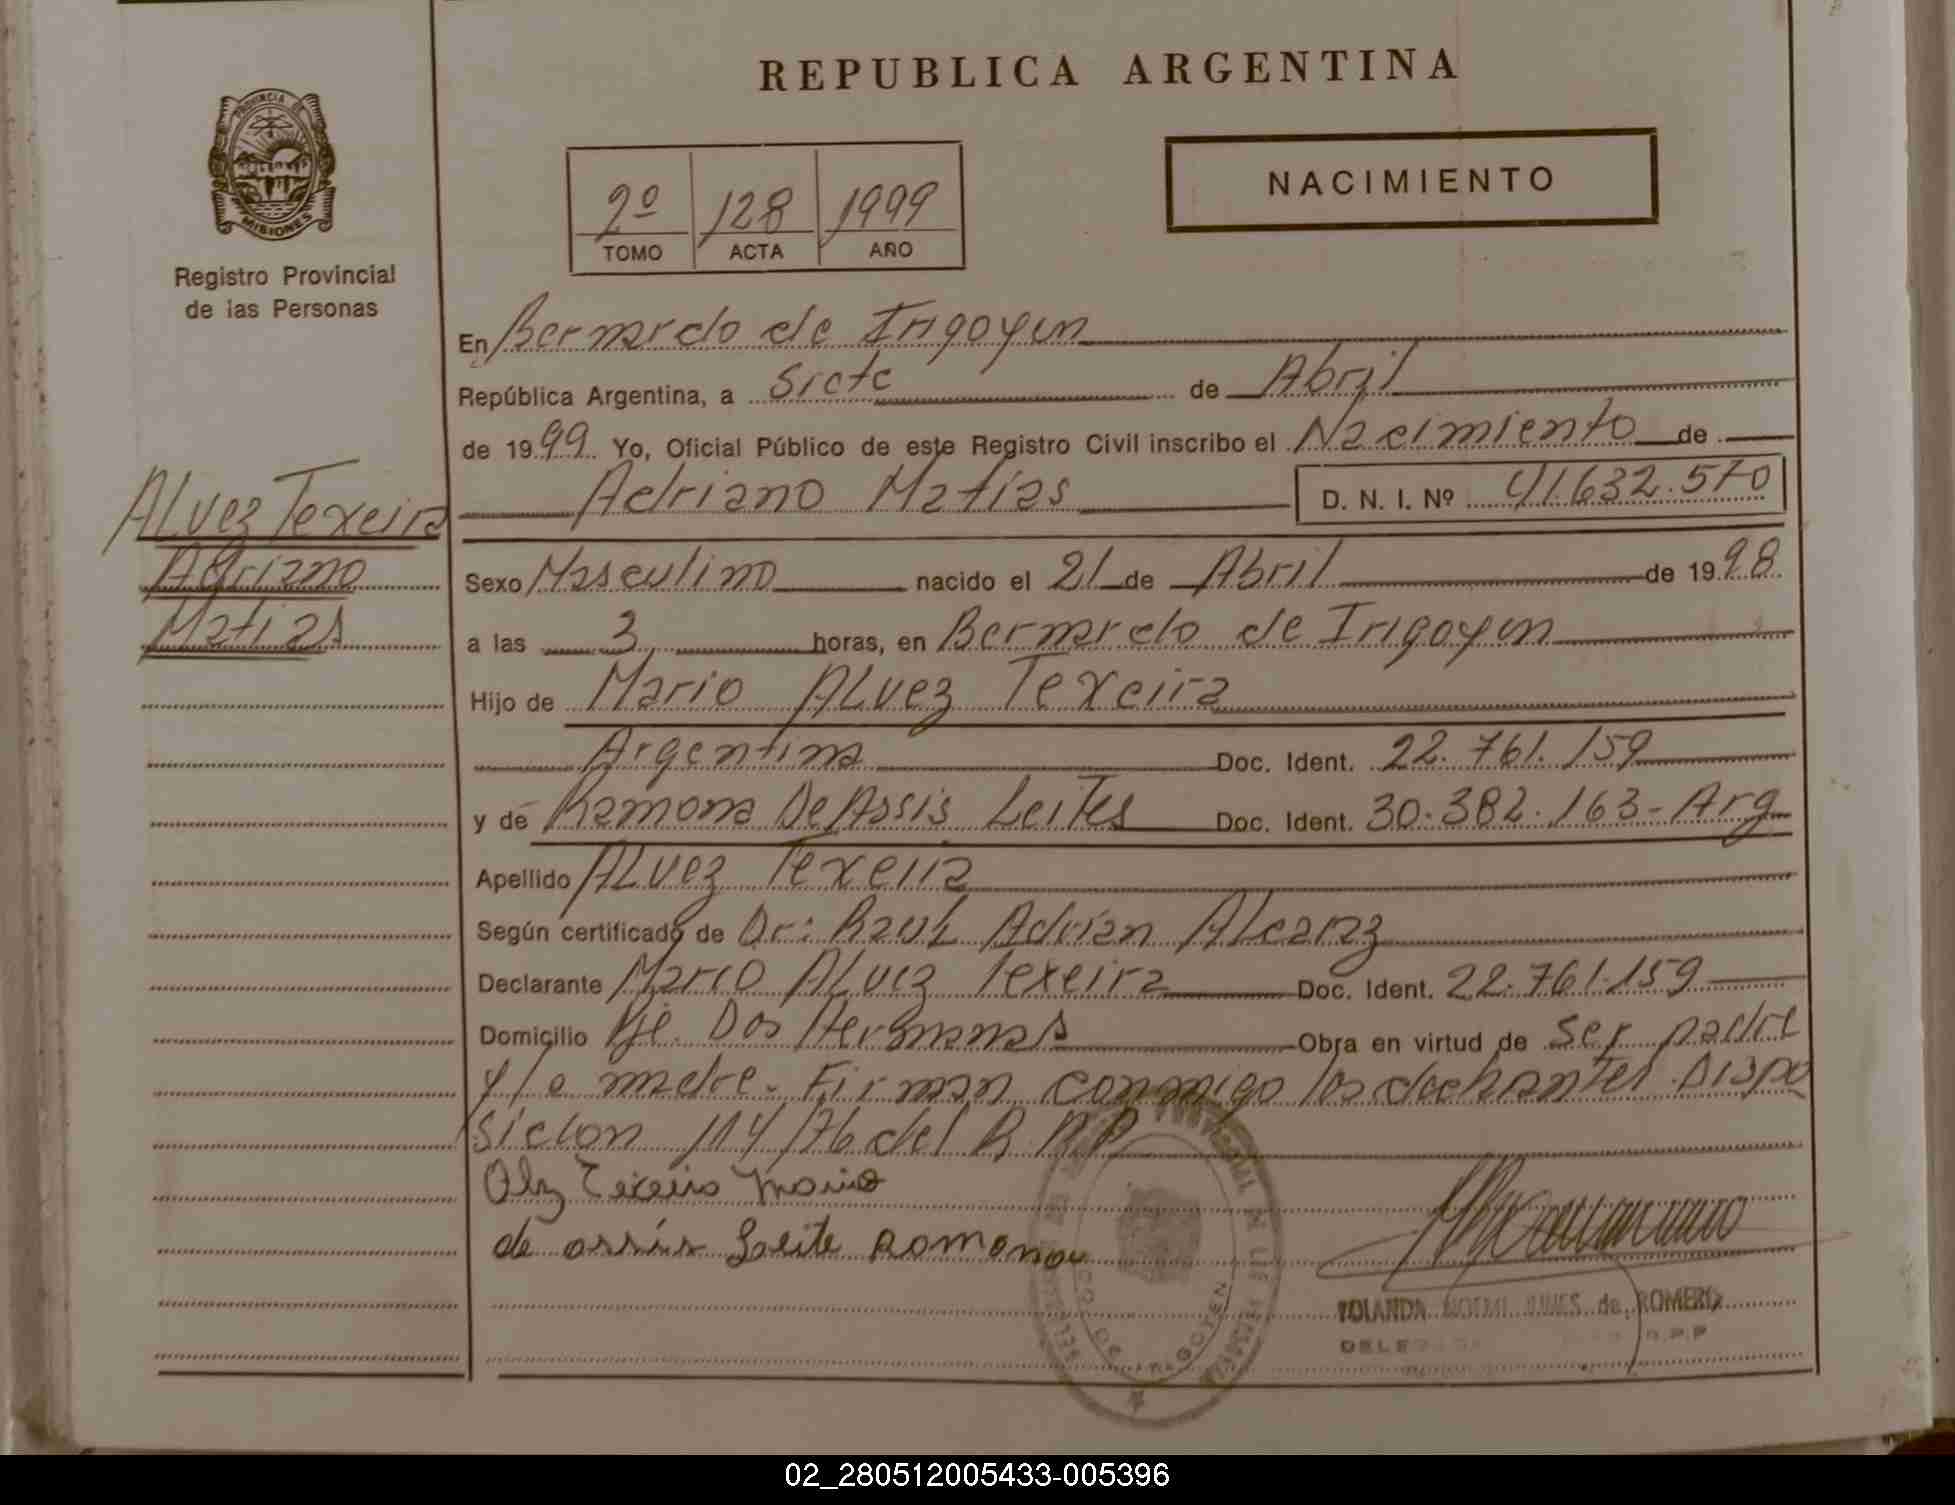 REPUBLICA ARGENTINA
PROVINCIA DE
MISIONES
Registro Provincial
de las Personas
2º 128 1999
TOMO ACTA AÑO
NACIMIENTO
En Bernardo de Irigoyen
República Argentina, a Siete de Abril
de 1999 Yo, Oficial Público de este Registro Civil inscribo el Nacimiento de
Adriano Matías D. N. I. Nº 41.632.570
Alvez Texeira
Adriano
Matias
Sexo Masculino nacido el 21 de Abril de 1998
a las 3 horas, en Bernardo de Irigoyen
Hijo de Mario Alvez Texeira
Argentina Doc. Ident. 22.761.159
y de Ramona De Assis Leites Doc. Ident. 30.382.163-Arg
Apellido Alvez Texeira
Según certificado de Dr: Raul Adrián Alcaraz
Declarante Mario Alvez Texeira Doc. Ident. 22.761.159
Domicilio Pje. Dos Hermanas Obra en virtud de ser padre
y la madre. Firman conmigo los declarantes. Dispo
sicion 114/76 del R.P.P
Texeira Mario
de assis Leite Romona
YOLANDA NOEMI de ROMERO
R.P.P
02_280512005433-005396